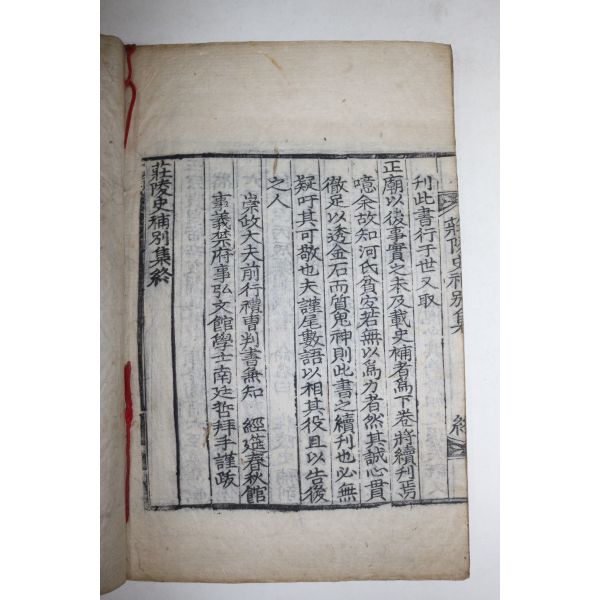 莊陵史補別集
終
刊此書行于世又取
正廟以後事實之未及載史補者爲下卷將續刊焉
噫余故知河氏貧窶若無以爲力者然其誠心貫
徹足以透金石而質鬼神則此書之續刊也必無
疑吁其可敬也夫謹尾數語以相其役且以告後
之人
崇政大夫前行禮曹判書兼知 經筵春秋館
事義禁府事弘文館學士南廷哲拜手謹跋
莊陵史補別集終